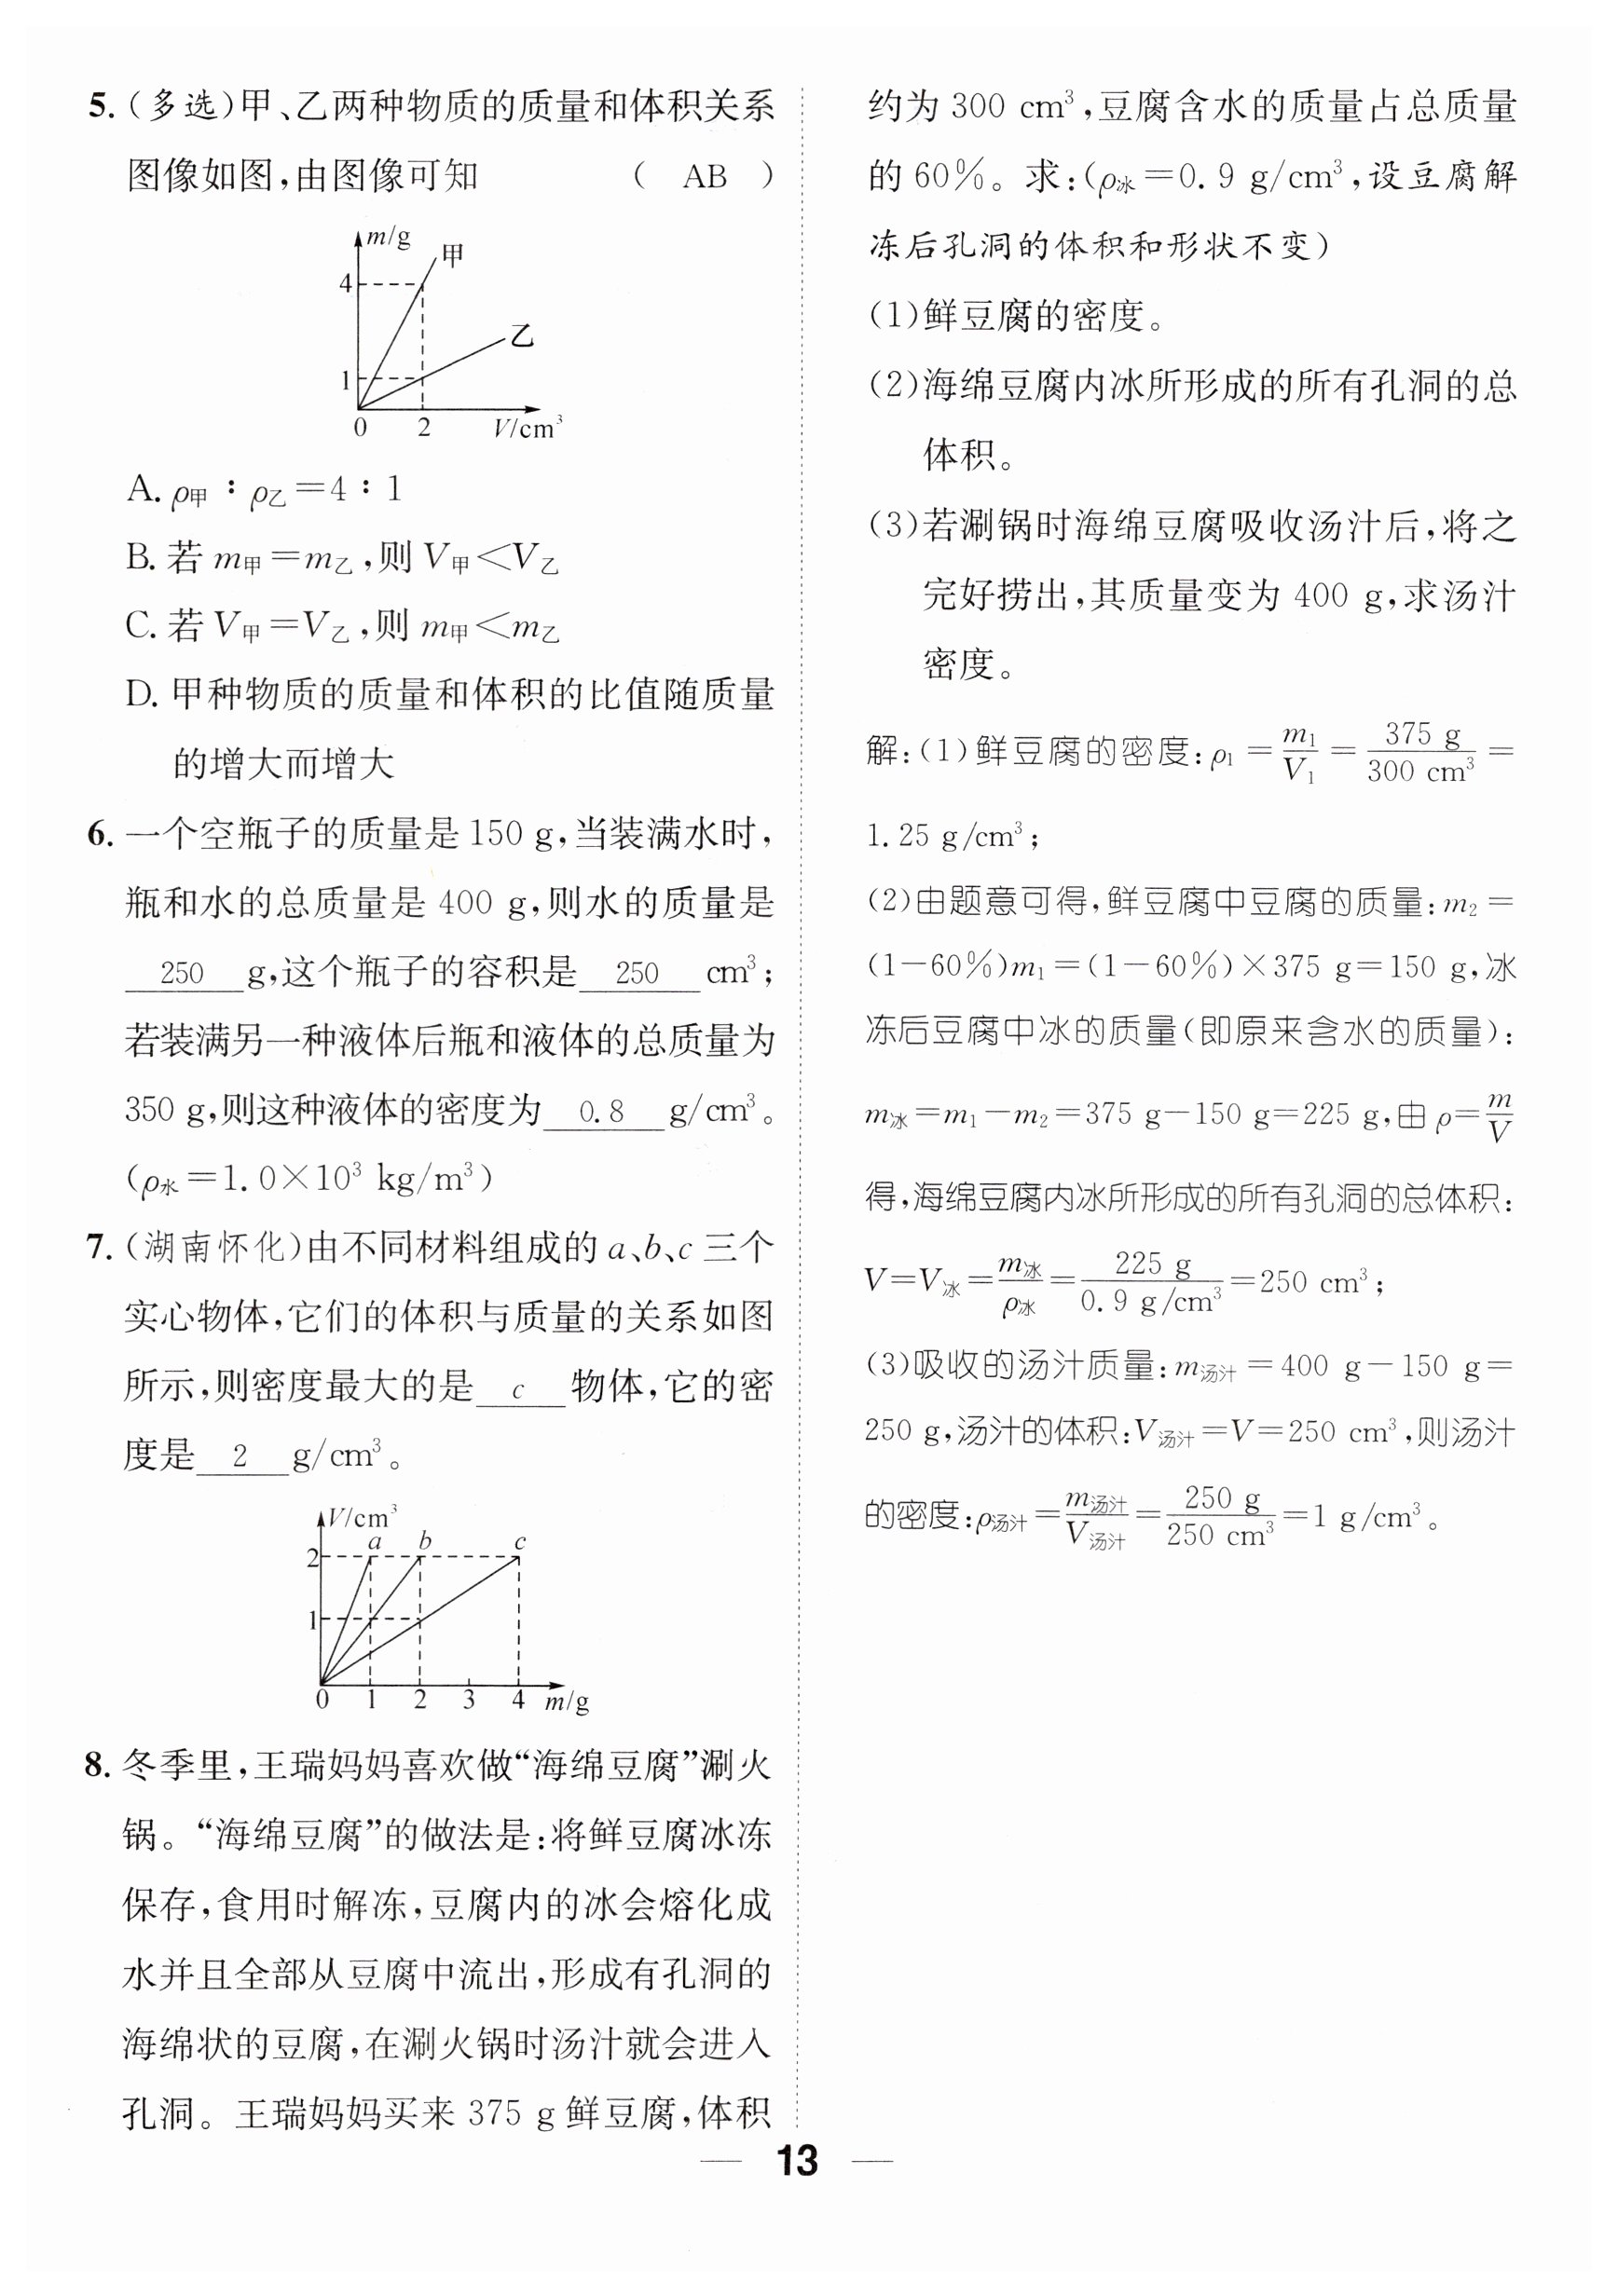 5. (多选)甲、乙两种物质的质量和体积关系
图像如图,由图像可知 ( AB )
m/g
甲
4
乙
1
0 2 V/cm³
A. ρ甲∶ρ乙=4∶1
B. 若 m甲=m乙,则 V甲<V乙
C. 若 V甲=V乙,则 m甲<m乙
D. 甲种物质的质量和体积的比值随质量
的增大而增大
6. 一个空瓶子的质量是 150 g,当装满水时,
瓶和水的总质量是 400 g,则水的质量是
250 g,这个瓶子的容积是 250 cm³;
若装满另一种液体后瓶和液体的总质量为
350 g,则这种液体的密度为 0.8 g/cm³。
(ρ水=1.0×10³ kg/m³)
7. (湖南怀化)由不同材料组成的 a、b、c 三个
实心物体,它们的体积与质量的关系如图
所示,则密度最大的是 c 物体,它的密
度是 2 g/cm³。
V/cm³
a b c
2
1
0 1 2 3 4 m/g
8. 冬季里,王瑞妈妈喜欢做“海绵豆腐”涮火
锅。“海绵豆腐”的做法是:将鲜豆腐冰冻
保存,食用时解冻,豆腐内的冰会熔化成
水并且全部从豆腐中流出,形成有孔洞的
海绵状的豆腐,在涮火锅时汤汁就会进入
孔洞。王瑞妈妈买来 375 g 鲜豆腐,体积
约为 300 cm³,豆腐含水的质量占总质量
的 60%。求:(ρ冰=0.9 g/cm³,设豆腐解
冻后孔洞的体积和形状不变)
(1)鲜豆腐的密度。
(2)海绵豆腐内冰所形成的所有孔洞的总
体积。
(3)若涮锅时海绵豆腐吸收汤汁后,将之
完好捞出,其质量变为 400 g,求汤汁
密度。
解:(1)鲜豆腐的密度:ρ₁=m₁/V₁=375 g/300 cm³=
1.25 g/cm³;
(2)由题意可得,鲜豆腐中豆腐的质量:m₂=
(1-60%)m₁=(1-60%)×375 g=150 g,冰
冻后豆腐中冰的质量(即原来含水的质量):
m冰=m₁-m₂=375 g-150 g=225 g,由 ρ=m/V
得,海绵豆腐内冰所形成的所有孔洞的总体积:
V=V冰=m冰/ρ冰=225 g/0.9 g/cm³=250 cm³;
(3)吸收的汤汁质量:m汤汁=400 g-150 g=
250 g,汤汁的体积:V汤汁=V=250 cm³,则汤汁
的密度:ρ汤汁=m汤汁/V汤汁=250 g/250 cm³=1 g/cm³。
13